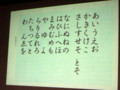 あいうえお
かきくけこ
さしすせそ
なにぬねの
はひふへほ
まみむめも
や ゆ よ
らりるれろ
たちつてと